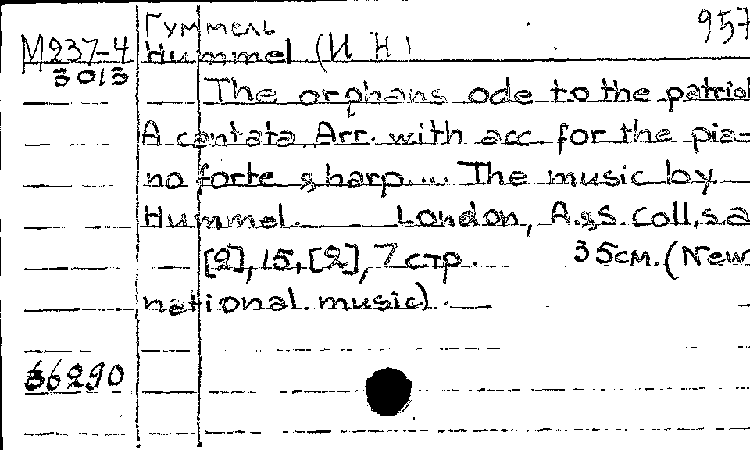 Гуммель 957
М237-4 Hummel (И Н)
3013
The orphans ode to the patriot
A cantata Arr. with acc. for the pia-
no forte & harp.... The music by
Hummel. London, A.&S. Coll, s.a
[2], 15, [2], 7 стр. 35см. (New
national music).
66290